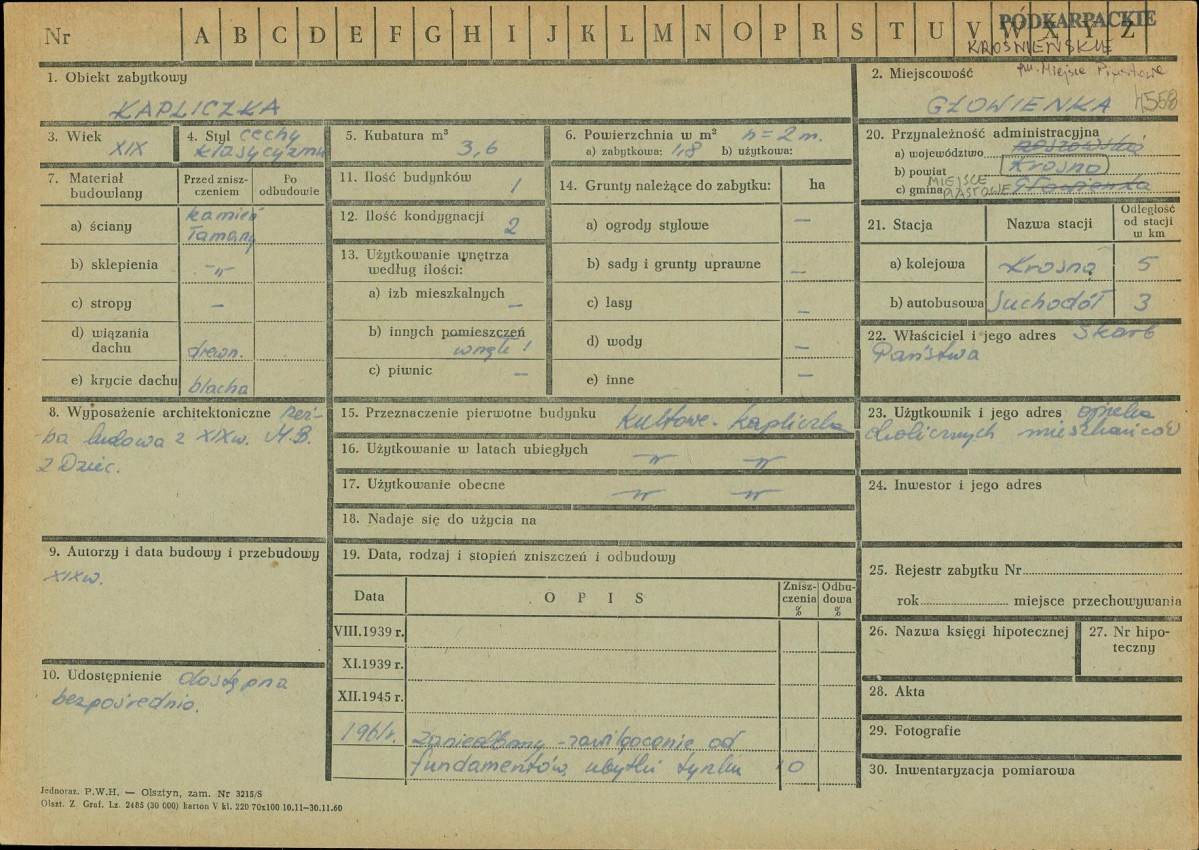 Nr A B C D E F G H I J K L M N O P R S T U V W X Y Z
PODKARPACKIE
KROŚNIEŃSKIE
gm. Miejsce Piastowe
1. Obiekt zabytkowy
KAPLICZKA
2. Miejscowość
GŁOWIENKA 4558
3. Wiek
XIX
4. Styl cechy
klasycyzmu
5. Kubatura m³
3,6
6. Powierzchnia w m² h = 2 m.
a) zabytkowa: 1,8 b) użytkowa:
20. Przynależność administracyjna
a) województwo rzeszowskie
b) powiat Krosno
c) gmina MIEJSCE PIASTOWE Głowienka
7. Materiał budowlany
Przed znisz-
czeniem
Po
odbudowie
a) ściany kamień
łamany
b) sklepienia -„-
c) stropy –
d) wiązania
dachu drewn.
e) krycie dachu blacha
11. Ilość budynków 1
12. Ilość kondygnacji 2
13. Użytkowanie wnętrza
według ilości:
a) izb mieszkalnych –
b) innych pomieszczeń
wnęk 1
c) piwnic –
14. Grunty należące do zabytku: ha
a) ogrody stylowe –
b) sady i grunty uprawne –
c) lasy –
d) wody –
e) inne –
21. Stacja Nazwa stacji
Odległość
od stacji
w km
a) kolejowa Krosno 5
b) autobusowa Suchodół 3
22. Właściciel i jego adres Skarb
Państwa
8. Wyposażenie architektoniczne Rzeź-
ba ludowa z XIX w. M.B.
z Dziec.
15. Przeznaczenie pierwotne budynku Kultowe - Kapliczka
16. Użytkowanie w latach ubiegłych -„- -„-
17. Użytkowanie obecne -„- -„-
18. Nadaje się do użycia na
23. Użytkownik i jego adres opieka
okolicznych mieszkańców
24. Inwestor i jego adres
9. Autorzy i data budowy i przebudowy
XIX w.
10. Udostępnienie dostępna
bezpośrednio.
19. Data, rodzaj i stopień zniszczeń i odbudowy
Data O P I S
Znisz-
czenia
%
Odbu-
dowa
%
VIII.1939 r.
XI.1939 r.
XII.1945 r.
1961 r. Zaniedbany - zawilgocenie od
fundamentów, ubytki tynku 10
25. Rejestr zabytku Nr
rok miejsce przechowywania
26. Nazwa księgi hipotecznej
27. Nr hipo-
teczny
28. Akta
29. Fotografie
30. Inwentaryzacja pomiarowa
Jednoraz. P.W.H. — Olsztyn, zam. Nr 3215/S
Olszt. Z. Graf. Lz. 2485 (30 000) karton V kl. 220 70x100 10.11—30.11.60